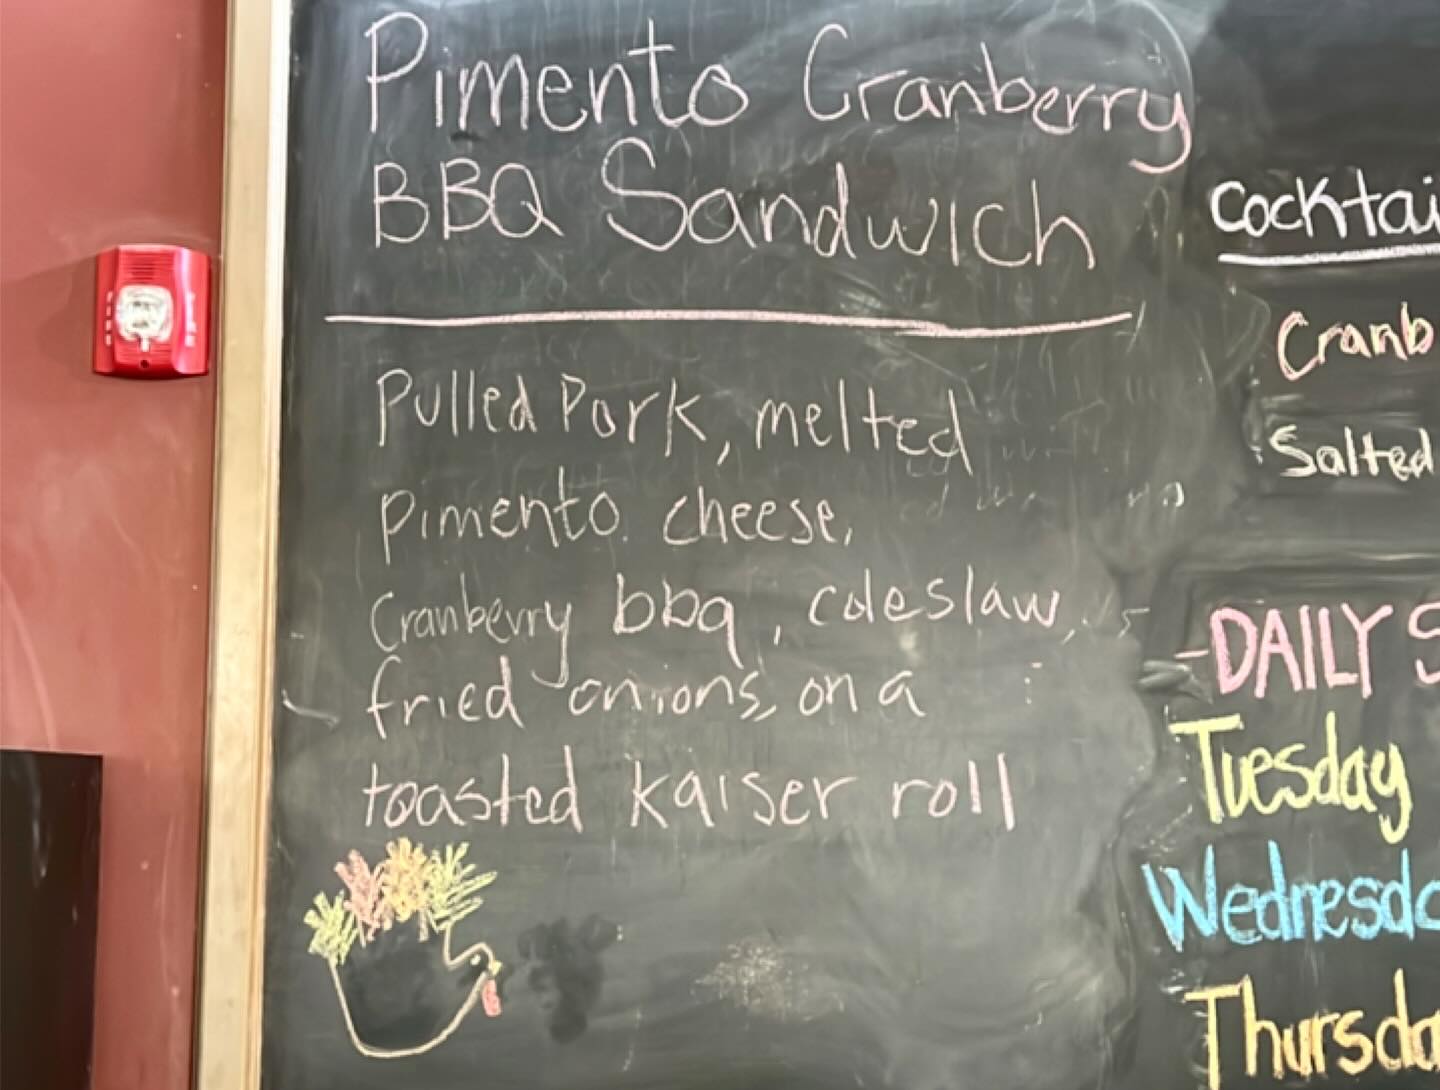 Pimento Cranberry
BBQ Sandwich
Pulled Pork, melted
Pimento cheese,
Cranberry bbq, coleslaw,
fried onions, on a
toasted kaiser roll
Cocktai
Cranb
Salted
DAILY S
Tuesday
Wednesda
Thursda